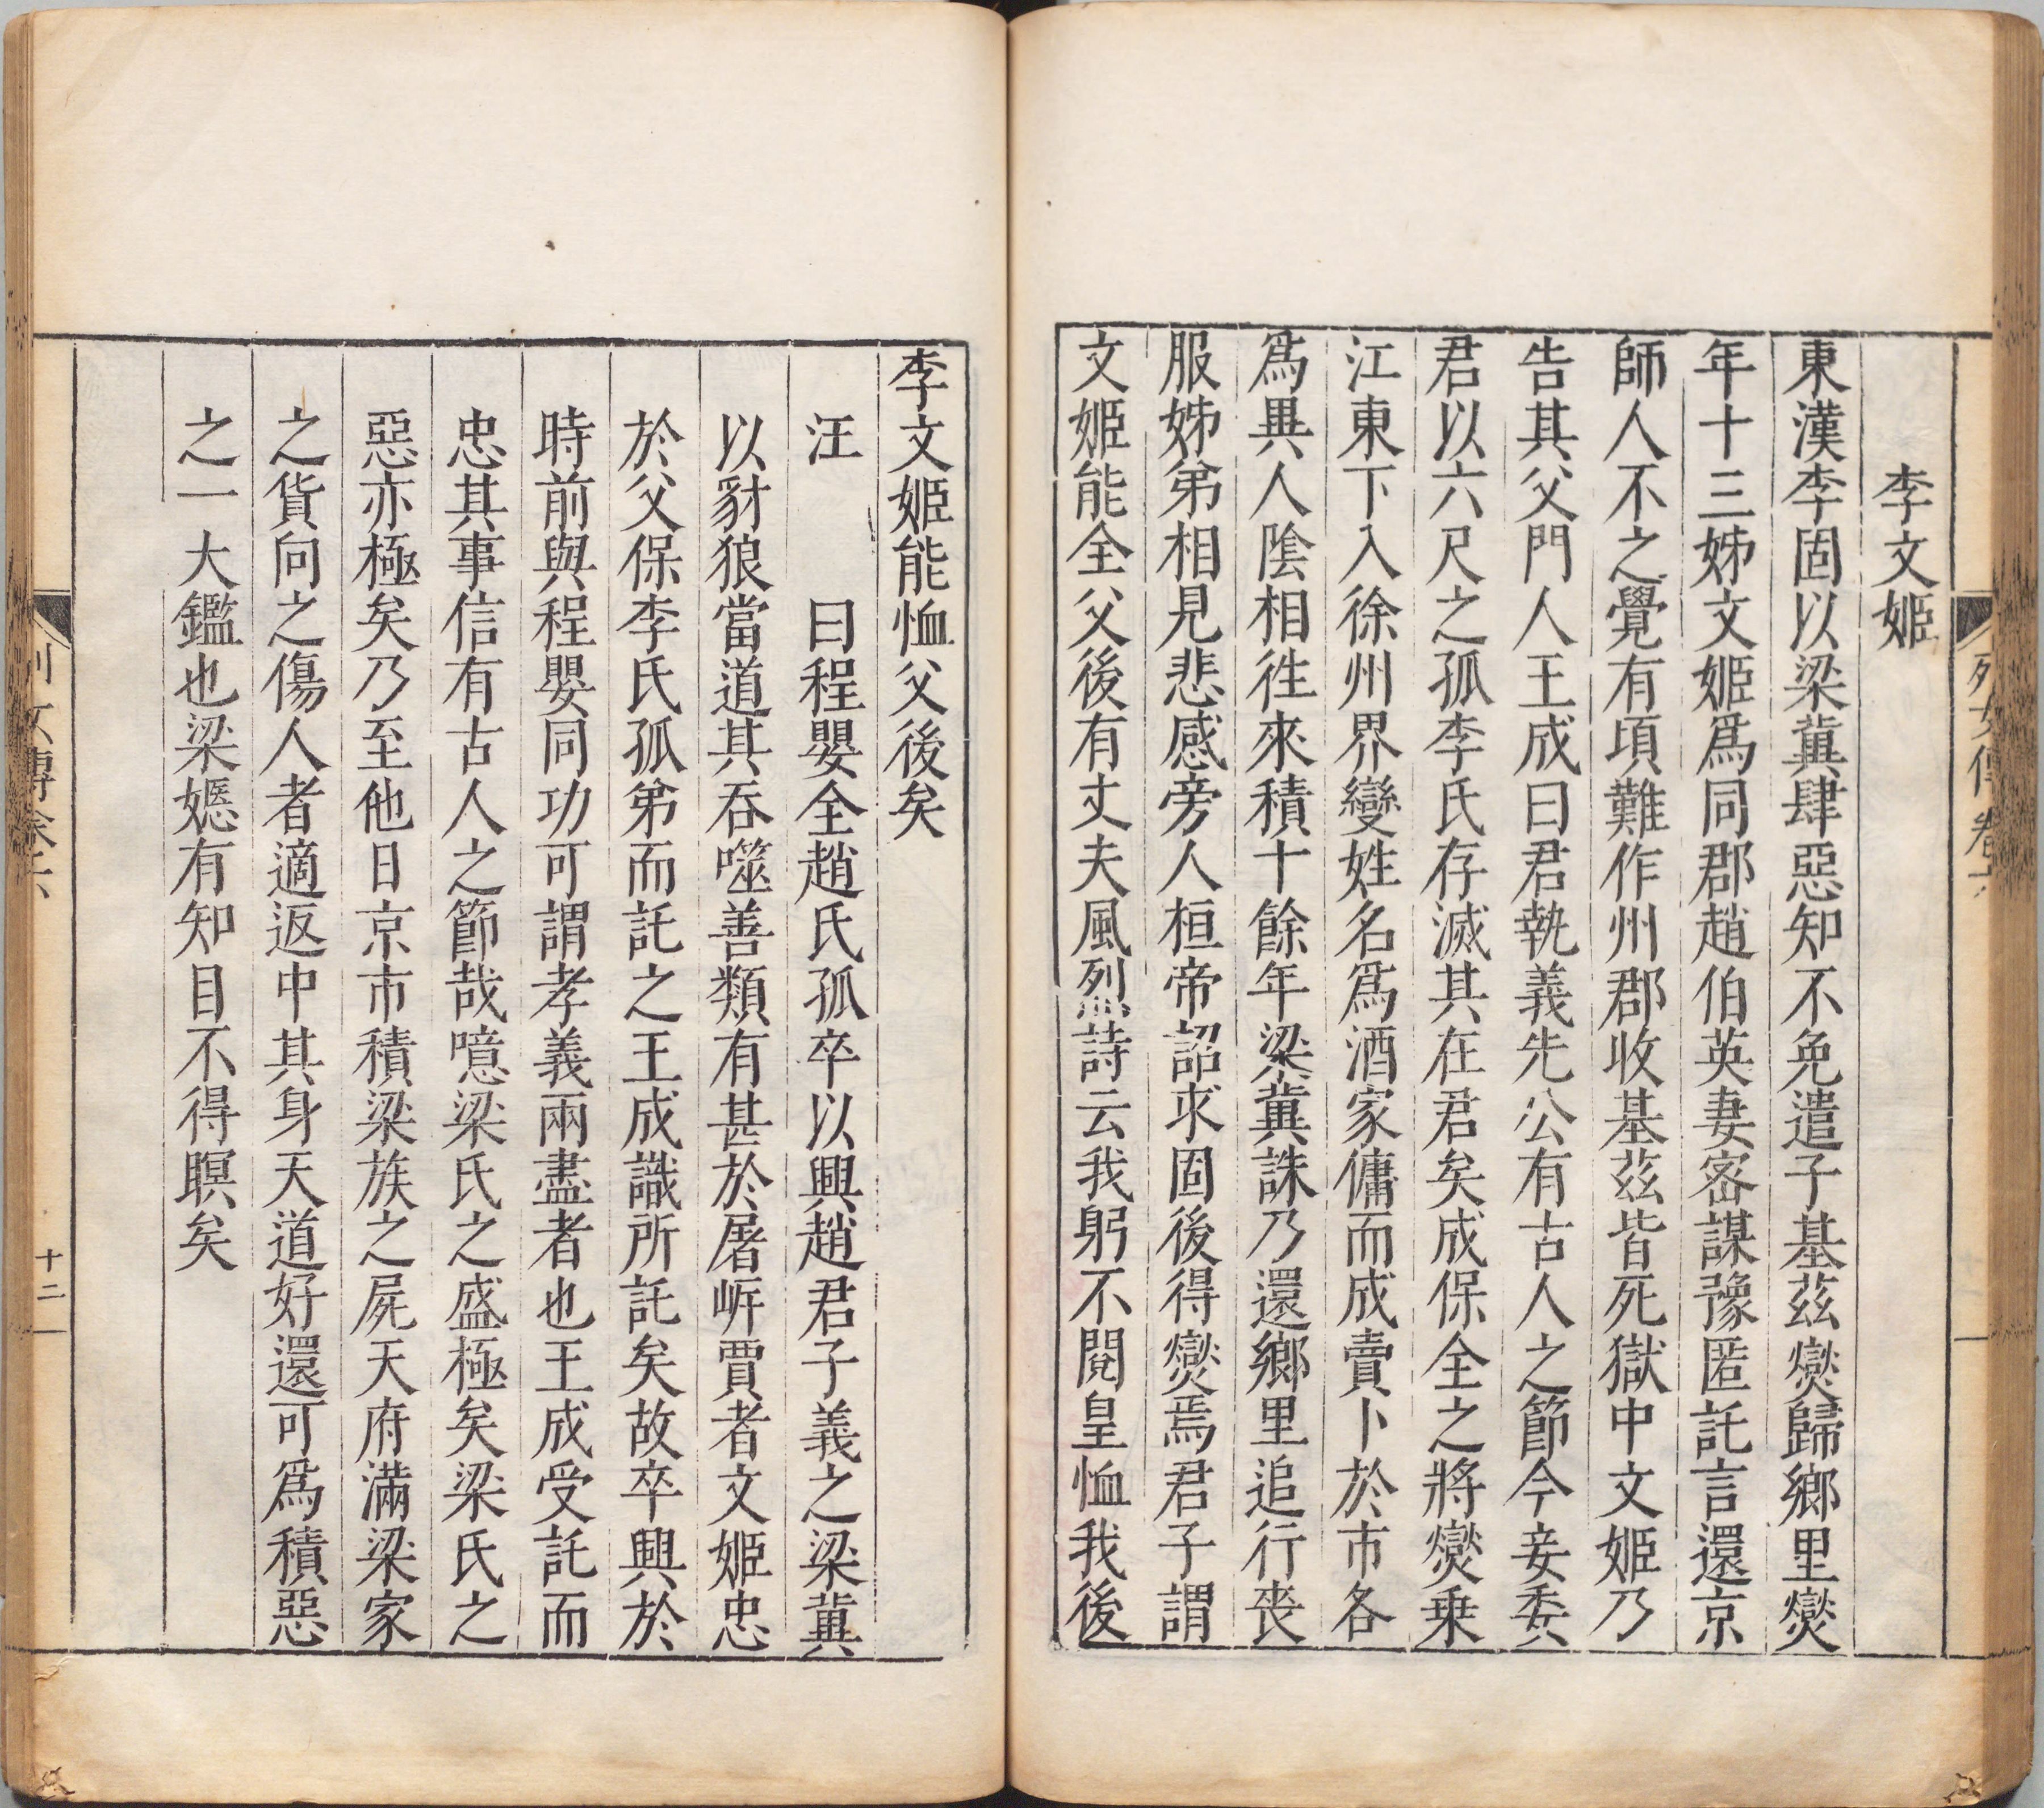 列女傳卷六
李文姬
東漢李固以梁冀肆惡知不免遣子基茲燮歸鄉里燮
年十三姊文姬爲同郡趙伯英妻密謀豫匿託言還京
師人不之覺有頃難作州郡收基茲皆死獄中文姬乃
告其父門人王成曰君執義先公有古人之節今妾委
君以六尺之孤李氏存滅其在君矣成保全之將燮乗
江東下入徐州界變姓名爲酒家傭而成賣卜於市各
爲異人陰相徃來積十餘年梁冀誅乃還鄉里追行喪
服姊弟相見悲感旁人桓帝詔求固後得燮焉君子謂
文姬能全父後有丈夫風烈詩云我躬不閱皇恤我後
李文姬能恤父後矣
汪 曰程嬰全趙氏孤卒以興趙君子義之梁冀
以豺狼當道其吞噬善類有甚於屠岸賈者文姬忠
於父保李氏孤弟而託之王成識所託矣故卒興於
時前與程嬰同功可謂孝義兩盡者也王成受託而
忠其事信有古人之節哉噫梁氏之盛極矣梁氏之
惡亦極矣乃至他日京市積梁族之屍天府滿梁家
之貨向之傷人者適返中其身天道好還可爲積惡
之一大鑑也梁嫕有知目不得瞑矣
列女傳卷六
十二